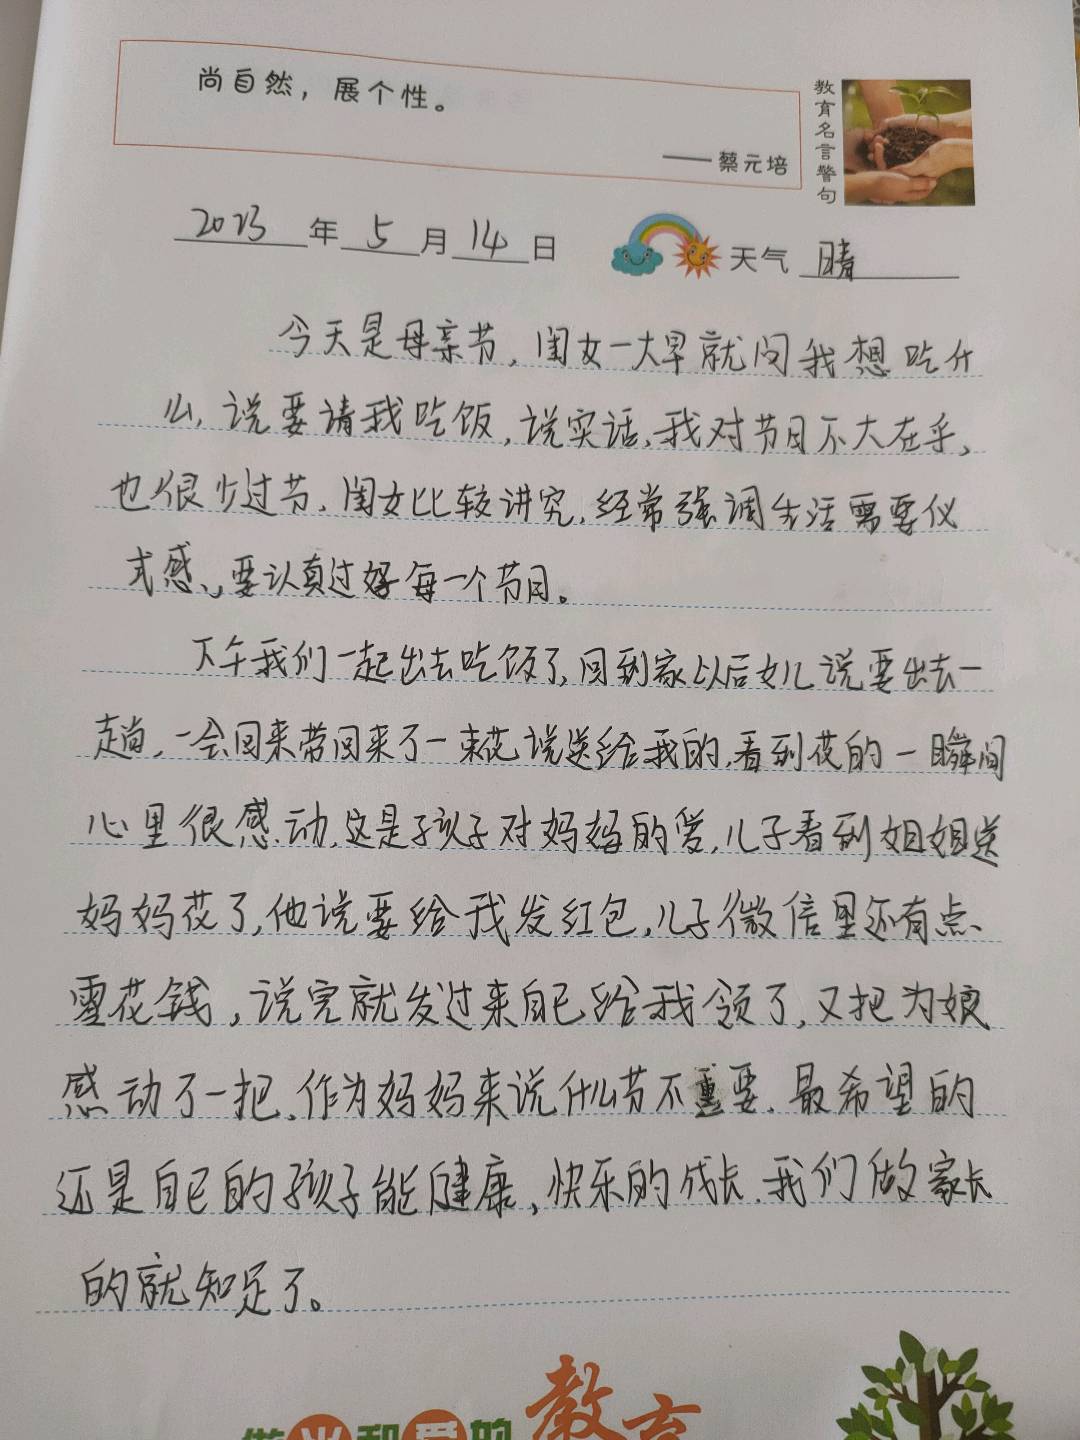 尚自然，展个性。
——蔡元培
教育名言警句
2023年5月14日 天气 晴
今天是母亲节，闺女一大早就问我想吃什
么，说要请我吃饭，说实话，我对节日不大在乎，
也很少过节，闺女比较讲究，经常强调生活需要仪
式感、要认真过好每一个节日。
下午我们一起出去吃饭了，回到家以后女儿说要出去一
趟，一会回来带回来了一束花说送给我的，看到花的一瞬间
心里很感动，这是孩子对妈妈的爱，儿子看到姐姐送
妈妈花了，他说要给我发红包，儿子微信里还有点
零花钱，说完就发过来自己给我领了，又把为娘
感动了一把，作为妈妈来说什么节不重要，最希望的
还是自己的孩子能健康，快乐的成长，我们做家长
的就知足了。
做 和爱的教育